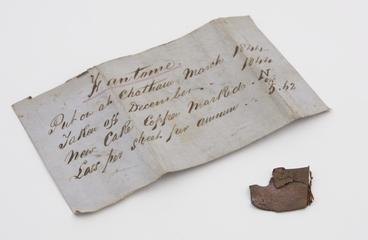 Fantome
Put on at Chatham March 1844
Taken off December 1844
New Cake Copper Marked N
Loss per sheet per annum 5.42